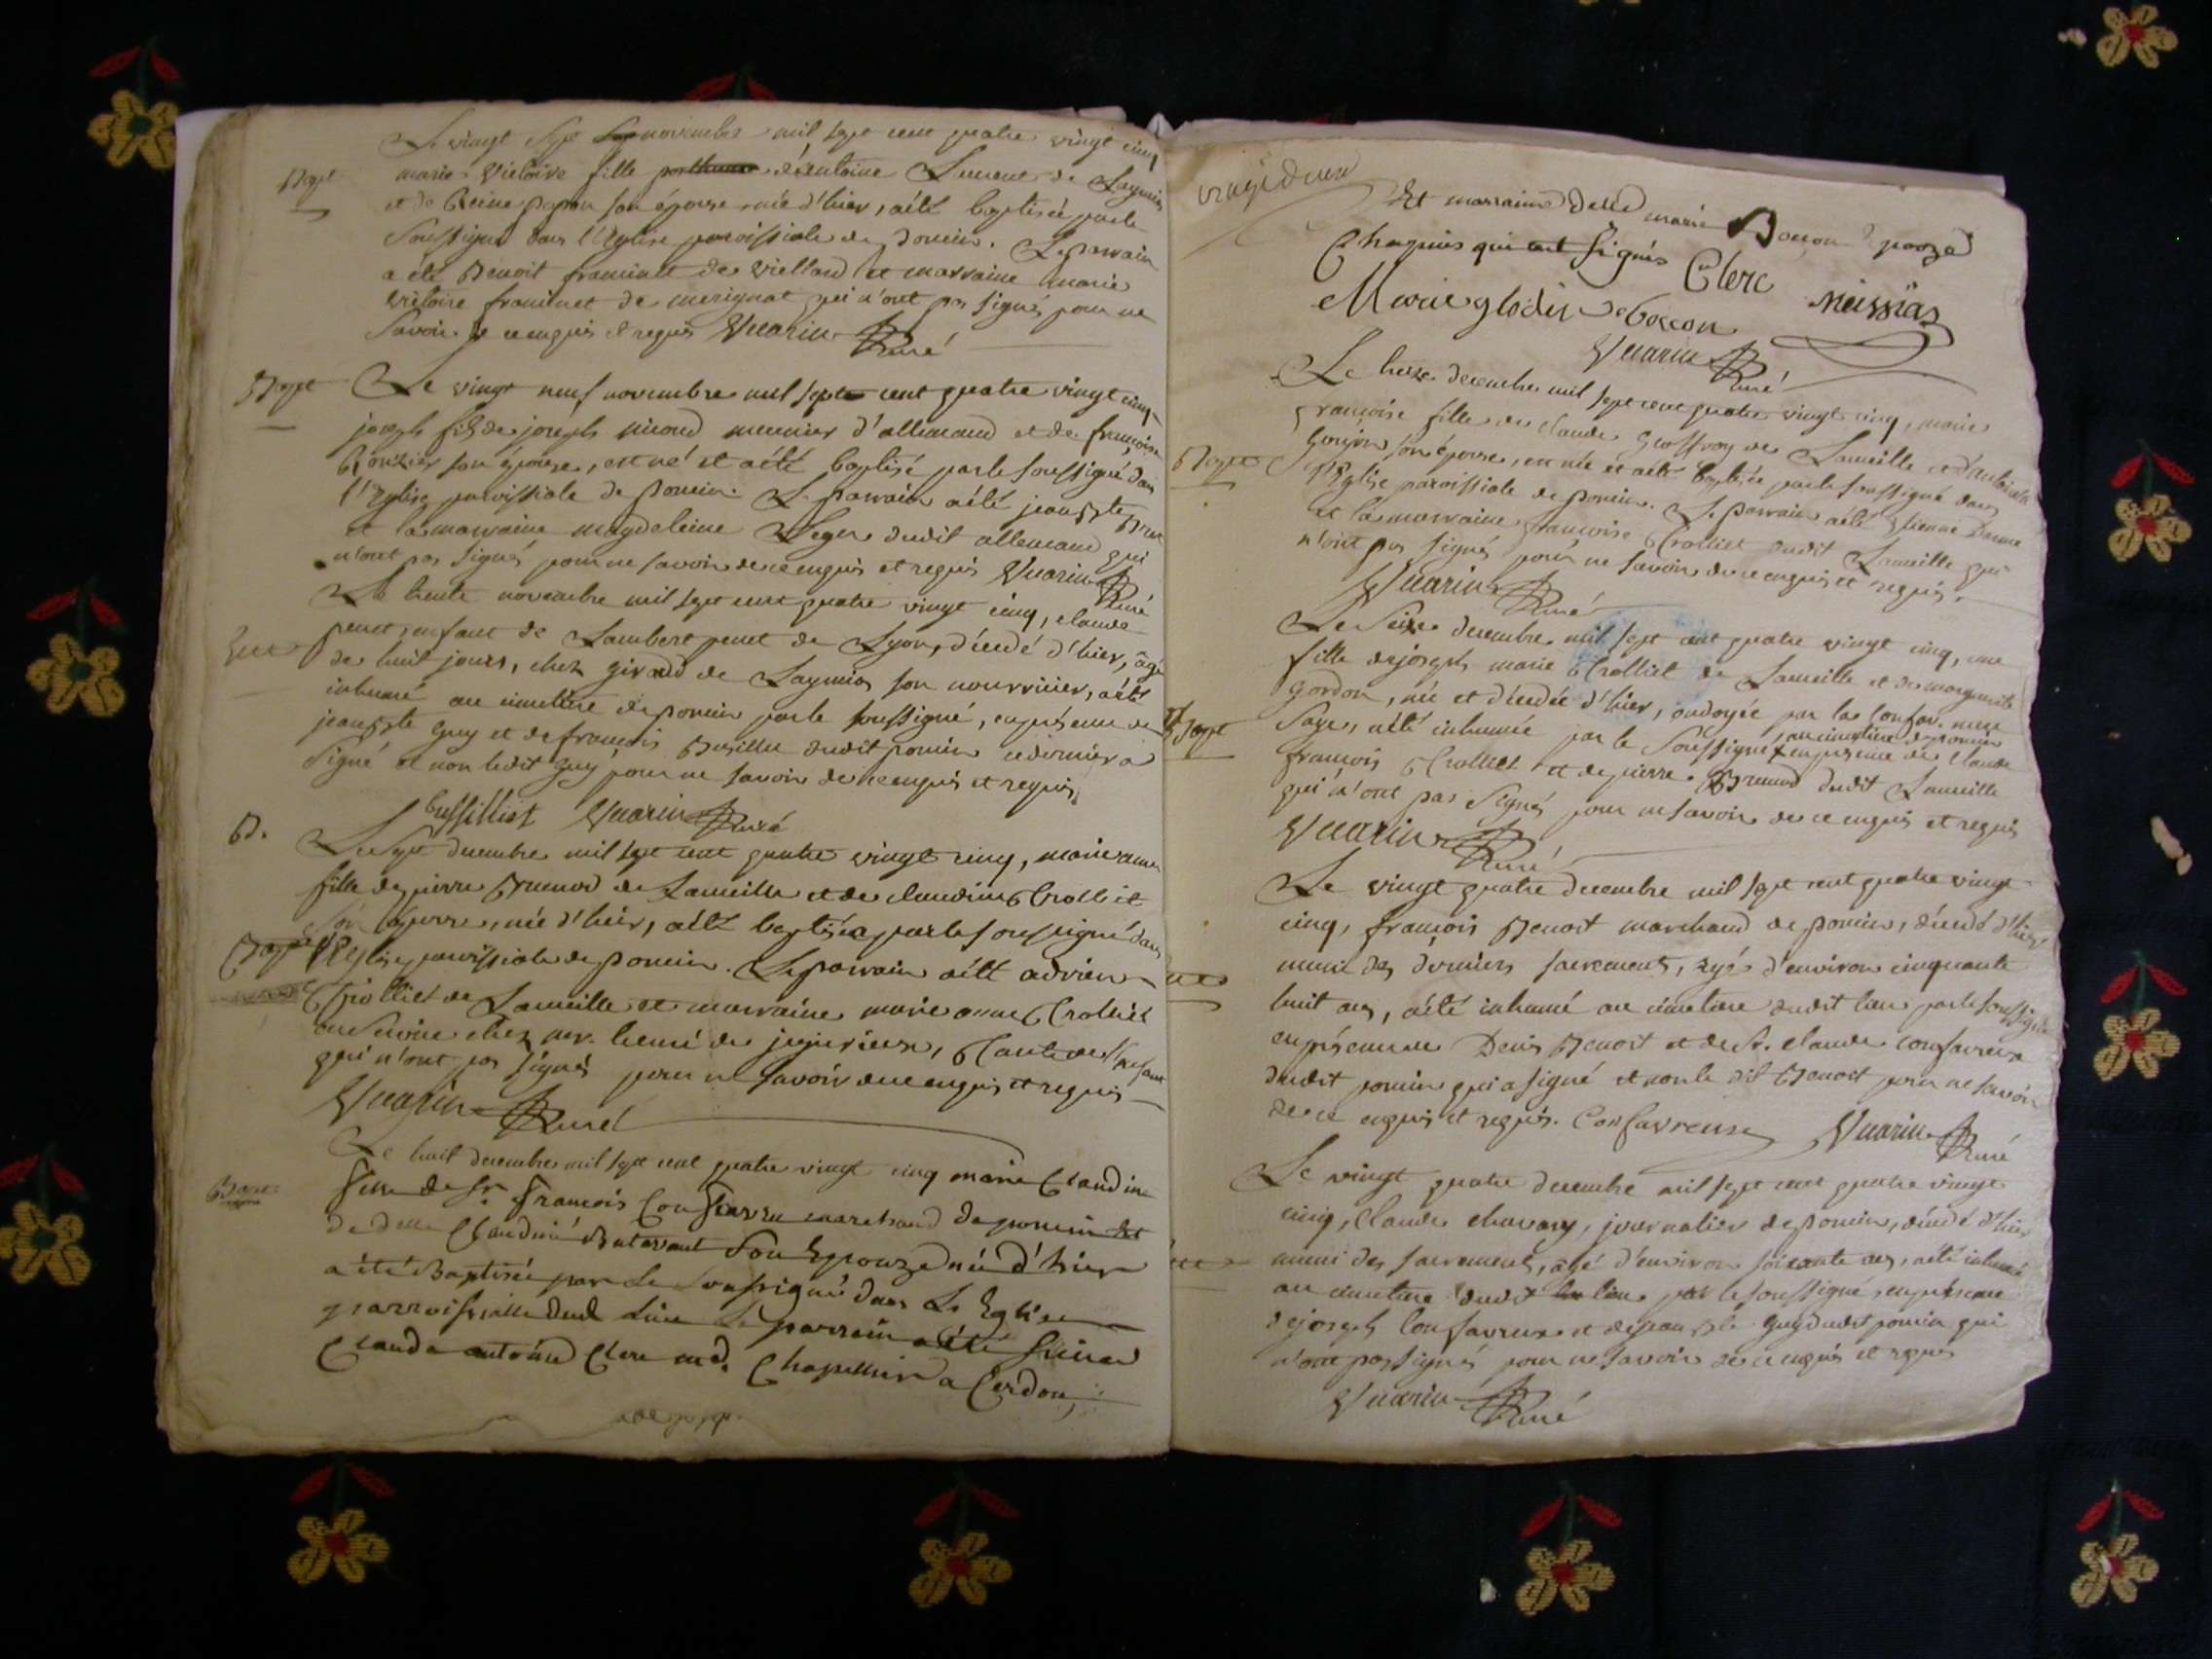 Le vingt sept novembre mil sept cent quatre vingt cinq
Bapt marie Victoire fille d'antoine de Laymia
et de Reine papon son épouse née d'hier, a été baptisée par le
soussigné dans l'Eglise paroissiale de poncin. Le parrain
a été Benoit franinet de viellard et marraine marie
victoire franinet de merignat qui n'ont pas signés pour ne
savoir de ce enquis et requis Vuarin Curé
Bapt Le vingt neuf novembre mil sept cent quatre vingt cinq
joseph fils de joseph nicoud meunier d'allemand et de françoise
son épouse, est né et a été baptisé par le soussigné dans
l'Eglise paroissiale de poncin. Le parrain a été jean Bte
et la marraine magdeleine Leger dudit allemand qui
n'ont pas signés pour ne savoir de ce enquis et requis Vuarin Curé
Le trente novembre mil sept cent quatre vingt cinq, claude
penet, enfant de Lambert penet de Lyon, décédé d'hier, âgé
de huit jours, chez giraud de Laymia son nourricier, a été
inhumé au cimetière de poncin par le soussigné, en présence de
jean Bte guy et de françois Bussillet dudit poncin ce dernier a
signé et non ledit guy pour ne savoir de ce enquis et requis
bussilliet Vuarin Curé
B. Le sept decembre mil sept cent quatre vingt cinq, marie anne
fille de pierre Brunod de Lameille et de claudine Crolliet
son épouse, née d'hier, a été baptisée par le soussigné dans
Bapt l'Eglise paroissiale de poncin. Le parrain a été adrien
Crolliet de Lameille et marraine marie anne Crolliet
au service chez mr. de jujurieux, tante de l'enfant
qui n'ont pas signés pour ne savoir de ce enquis et requis
Vuarin Curé
Le huit decembre mil sept cent quatre vingt cinq marie Claudine
fille de sr. françois Confavreu marchand de poncin et
de delle Claudine son Epouze née d'hier
a été Baptisée par le soussigné dans L'Eglise
parroissialle dud. Lieu Le parrain a été sieur
Claude antoine Clerc md. Chapellier a Cerdon,
Et marraine delle marie Bocon Epouze
Chapuis qui ont signés Clerc Meissias
Marie glodine bocon
Vuarin Curé
Le treize decembre mil sept cent quatre vingt cinq, marie
françoise fille de claude geoffray de Lameille et d'antoinette
Bapt goujon son épouse, est née et a été baptisée par le soussigné dans
l'Eglise paroissiale de poncin. Le parrain a été Etienne
et la marraine françoise Crolliet dudit Lameille qui
n'ont pas signés pour ne savoir de ce enquis et requis.
Vuarin Curé
Le seize decembre mil sept cent quatre vingt cinq, une
fille de joseph marie Crolliet de Lameille et de marguerite
gordon, née et décédée d'hier, ondoyée par la
Bapt sage, a été inhumée par le soussigné au cimetière de poncin en présence de claude
françois Crolliet et de pierre Brunod dudit Lameille
qui n'ont pas signés pour ne savoir de ce enquis et requis
Vuarin Curé
Le vingt quatre decembre mil sept cent quatre vingt
cinq, françois Benoit marchand de poncin, décédé d'hier
muni des derniers sacrements, agé d'environ cinquante
huit ans, a été inhumé au cimetière dudit lieu par le soussigné
en présence de Denis Benoit et de Sr. claude confavreux
dudit poncin qui a signé et non le dit Benoit pour ne savoir
de ce enquis et requis. Confavreux Vuarin Curé
Le vingt quatre decembre mil sept cent quatre vingt
cinq, claude chavany, journalier de poncin, décédé d'hier
muni des sacrements, agé d'environ soixante ans, a été inhumé
au cimetière dudit lieu par le soussigné, en présence
de joseph Confavreux et de jean Bte guy dudit poncin qui
n'ont pas signés pour ne savoir de ce enquis et requis
Vuarin Curé